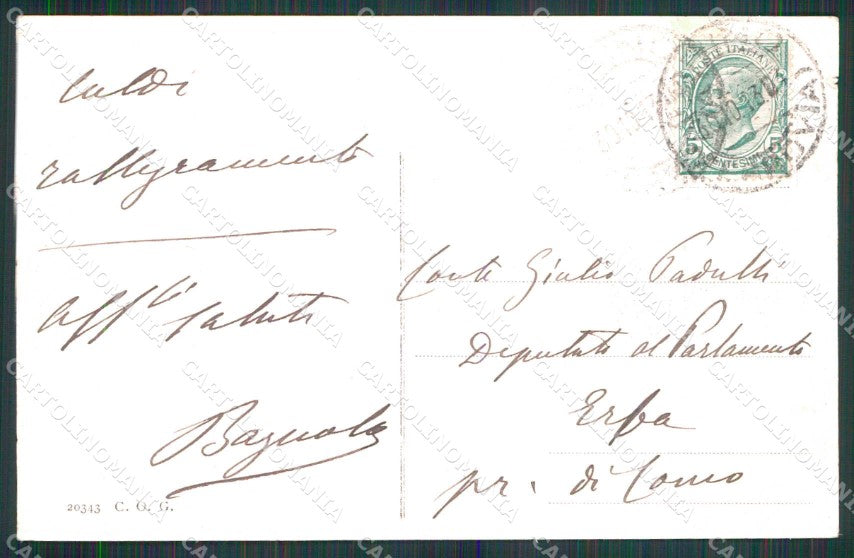 Caldi
rallegramenti
Aff.ti saluti
Bagnolo
20343 C. O. G.
POSTE ITALIANE
5 CENTESIMI 5
Conte Giulio Padulli
Deputato al Parlamento
Erba
pr. di Como
CARTOLINOMANIA